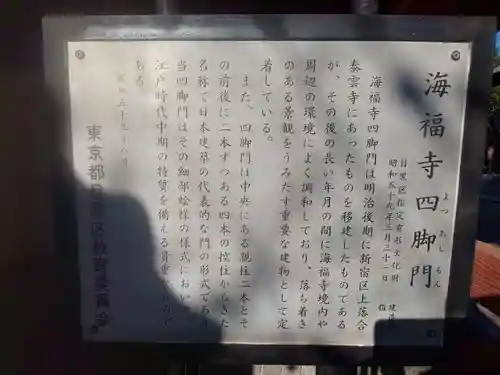 海福寺四脚門
よつあしもん
目黒区指定有形文化財
昭和五十九年三月三十一日 指
海福寺四脚門は明治後期に新宿区上落合
泰雲寺にあったものを移建したものである
が、その後の長い年月の間に海福寺境内や
周辺の環境によく調和しており、落ち着き
のある景観をうみだす重要な建物として定
着している。
また、四脚門は中央にある親柱二本とそ
の前後に二本ずつある四本の控柱からきた
名称で日本建築の代表的な門の形式であり
当四脚門はその細部絵様の様式において
江戸時代中期の特質を備える貴重なもので
ある
東京都目黒区教育委員会